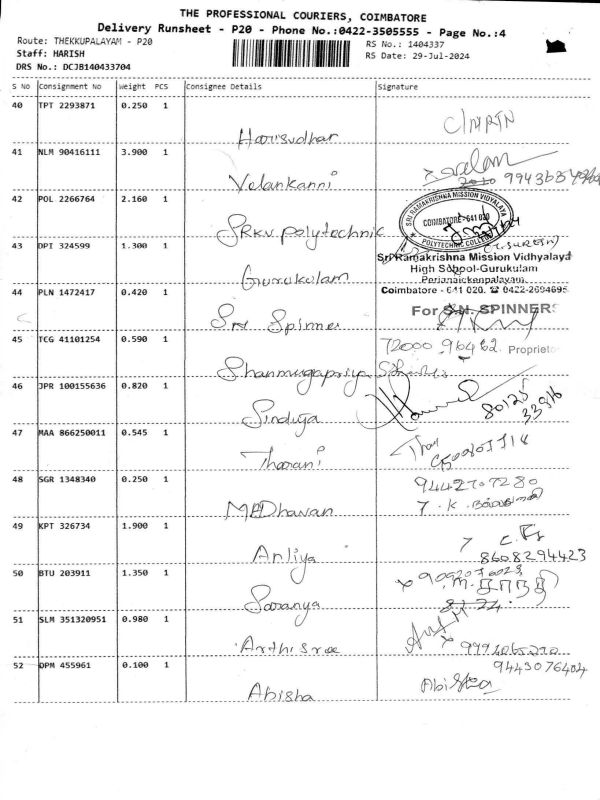 THE PROFESSIONAL COURIERS, COIMBATORE
Delivery Runsheet - P20 - Phone No.:0422-3505555 - Page No.:4
Route: THEKKUPALAYAM - P20
RS No.: 1404337
Staff: HARISH
RS Date: 29-Jul-2024
DRS No.: DCJB140433704
S No Consignment No Weight PCS Consignee Details Signature
40 TPT 2293871 0.250 1
Harisudhar
41 NLM 90416111 3.900 1
Velankanni
42 POL 2266764 2.160 1
SRKV polytechnic
SRI RAMAKRISHNA MISSION VIDYALAYA
COIMBATORE-641 020
POLYTECHNIC COLLEGE
43 DPI 324599 1.300 1
Gurukulam
Sri Ramakrishna Mission Vidhyalaya
High School-Gurukulam
Perianaickenpalayam,
Coimbatore - 641 020. ☎ 0422-2694695
44 PLN 1472417 0.420 1
Sri Spinner
For S.N. SPINNERS
45 TCG 41101254 0.590 1
72000 96462 Proprietor
Shanmugapriya
46 JPR 100155636 0.820 1
Sinduja
80125
33916
47 MAA 866250011 0.545 1
Tharani
48 SGR 1348340 0.250 1
9442707280
Madhavan
49 KPT 326734 1.900 1
Anliya
8608294423
50 BTU 203911 1.350 1
Saranya
51 SLM 351320951 0.980 1
Arthisree
52 DPM 455961 0.100 1
9443076404
Abisha
Abisha